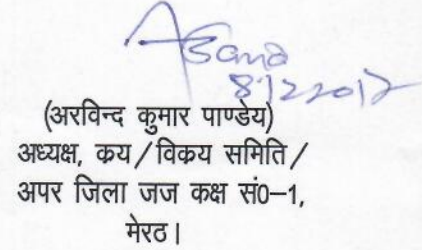 (अरविन्द कुमार पाण्डेय)
अध्यक्ष, कय/विकय समिति/
अपर जिला जज कक्ष सं0-1,
मेरठ।